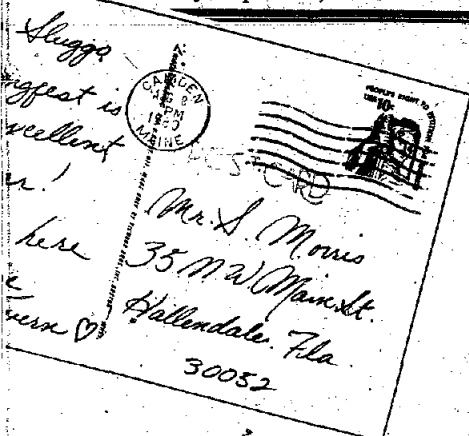 Sluggo
ngfest is
xcellent
r!
here
e
Vern ♡
CAMDEN
PM
MAINE
PEOPLE'S RIGHT TO PETITION
USA 10c
POST CARD
Mr. S. Morris
35 NW Main St.
Hallendale. Fla.
30052